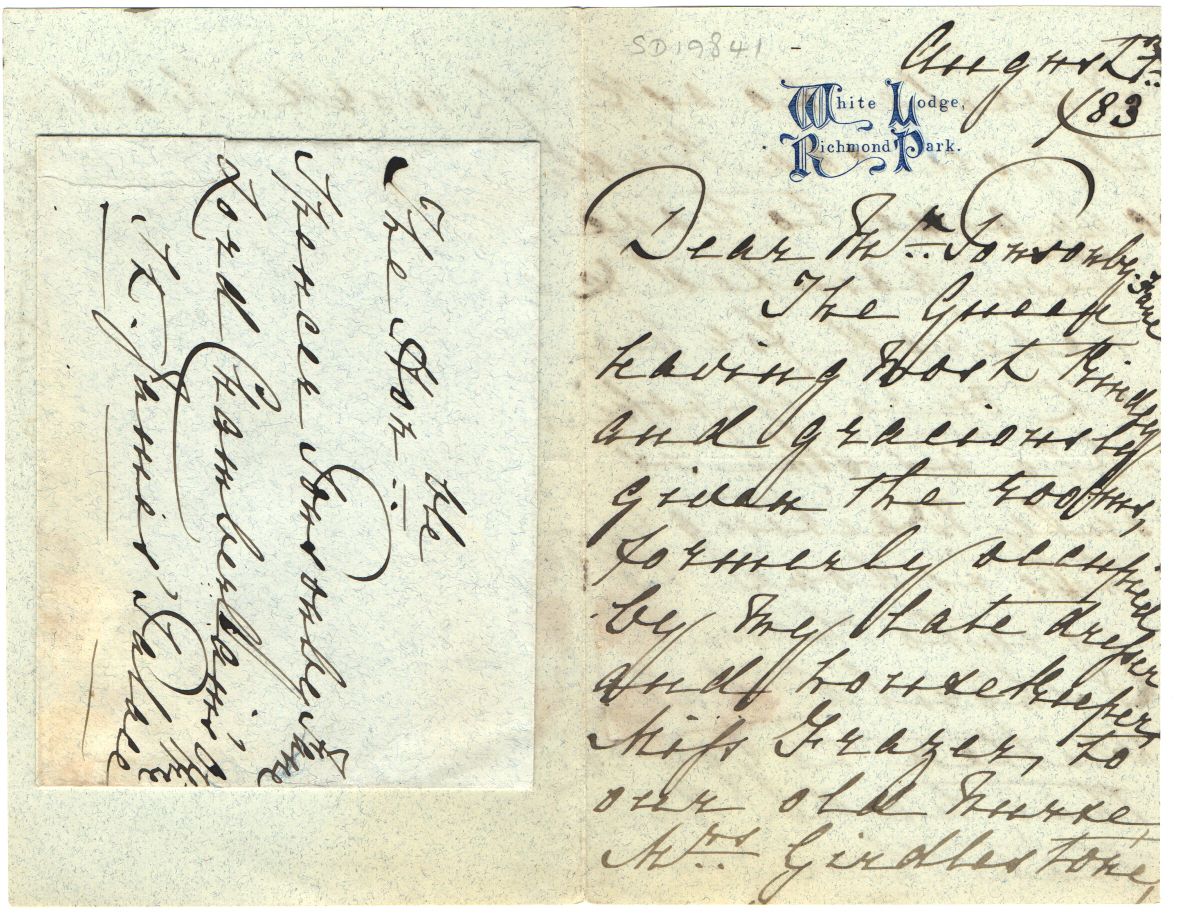 The Hon: ble
Spencer Ponsonby Fane
Lord Chamberlain's Office
St. James' Palace
SD19841
August
/83
White Lodge,
Richmond Park.
Dear Mr. Ponsonby-Fane
The Queen
having most kindly
and graciously
given the rooms,
formerly occupied
by my late dresser
and housekeeper
Miss Frazer, to
our old nurse
Mrs Girdlestone,